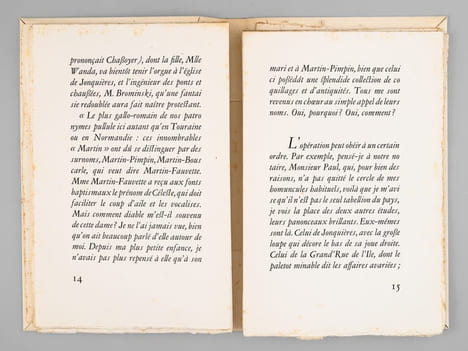 prononçait Chaßoyer), dont la fille, Mlle
Wanda, va bientôt tenir l'orgue à l'église
de Jonquières, et l'ingénieur des ponts et
chaußées, M. Brominski, qu'une fantai
sie redoublée aura fait naître protestant.
« Le plus gallo-romain de nos patro
nymes pullule ici autant qu'en Touraine
ou en Normandie : ces innombrables
« Martin » ont dû se distinguer par des
surnoms, Martin-Pimpin, Martin-Bous
carle, qui veut dire Martin-Fauvette.
Mme Martin-Fauvette a reçu aux fonts
baptismaux le prénom de Céleste, qui doit
faciliter le coup d'aile et les vocalises.
Mais comment diable m'est-il souvenu
de cette dame? Je ne l'ai jamais vue, bien
qu'on ait beaucoup parlé d'elle autour de
moi. Depuis ma plus petite enfance, je
n'avais pas plus repensé à elle qu'à son
14
mari et à Martin-Pimpin, bien que celui
ci poßédât une splendide collection de co
quillages et d'antiquités. Tous me sont
revenus en chœur au simple appel de leurs
noms. Oui, pourquoi? Oui, comment?
L'opération peut obéir à un certain
ordre. Par exemple, pensé-je à notre no
taire, Monsieur Paul, qui, pour bien des
raisons, n'a pas quitté le cercle de mes
homuncules habituels, voilà que je m'avi
se qu'il n'est pas le seul tabellion du pays,
je vois la place des deux autres études,
leurs panonceaux brillants. Eux-mêmes
sont là. Celui de Jonquières, avec la große
loupe qui décore le bas de sa joue droite.
Celui de la Grand'Rue de l'Ile, dont le
paletot minable dit les affaires avariées ;
15